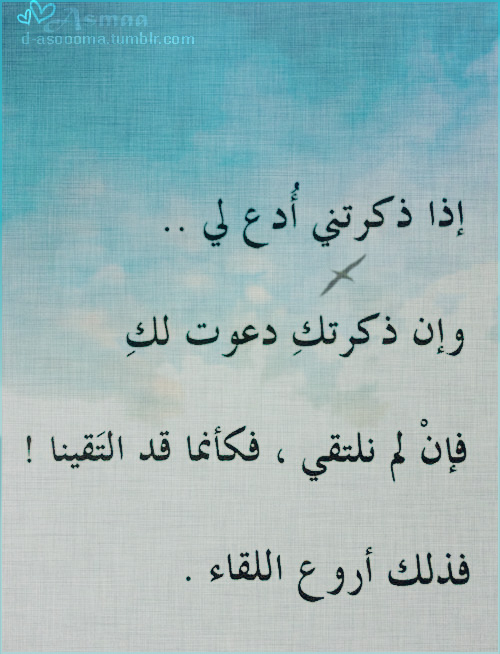 Asmaa
d-asoooma.tumblr.com
إذا ذكرتني أُدع لي ..
وإن ذكرتكِ دعوت لكِ
فإنْ لم نلتقي ، فكأنما قد التَقينا !
فذلك أروع اللقاء .